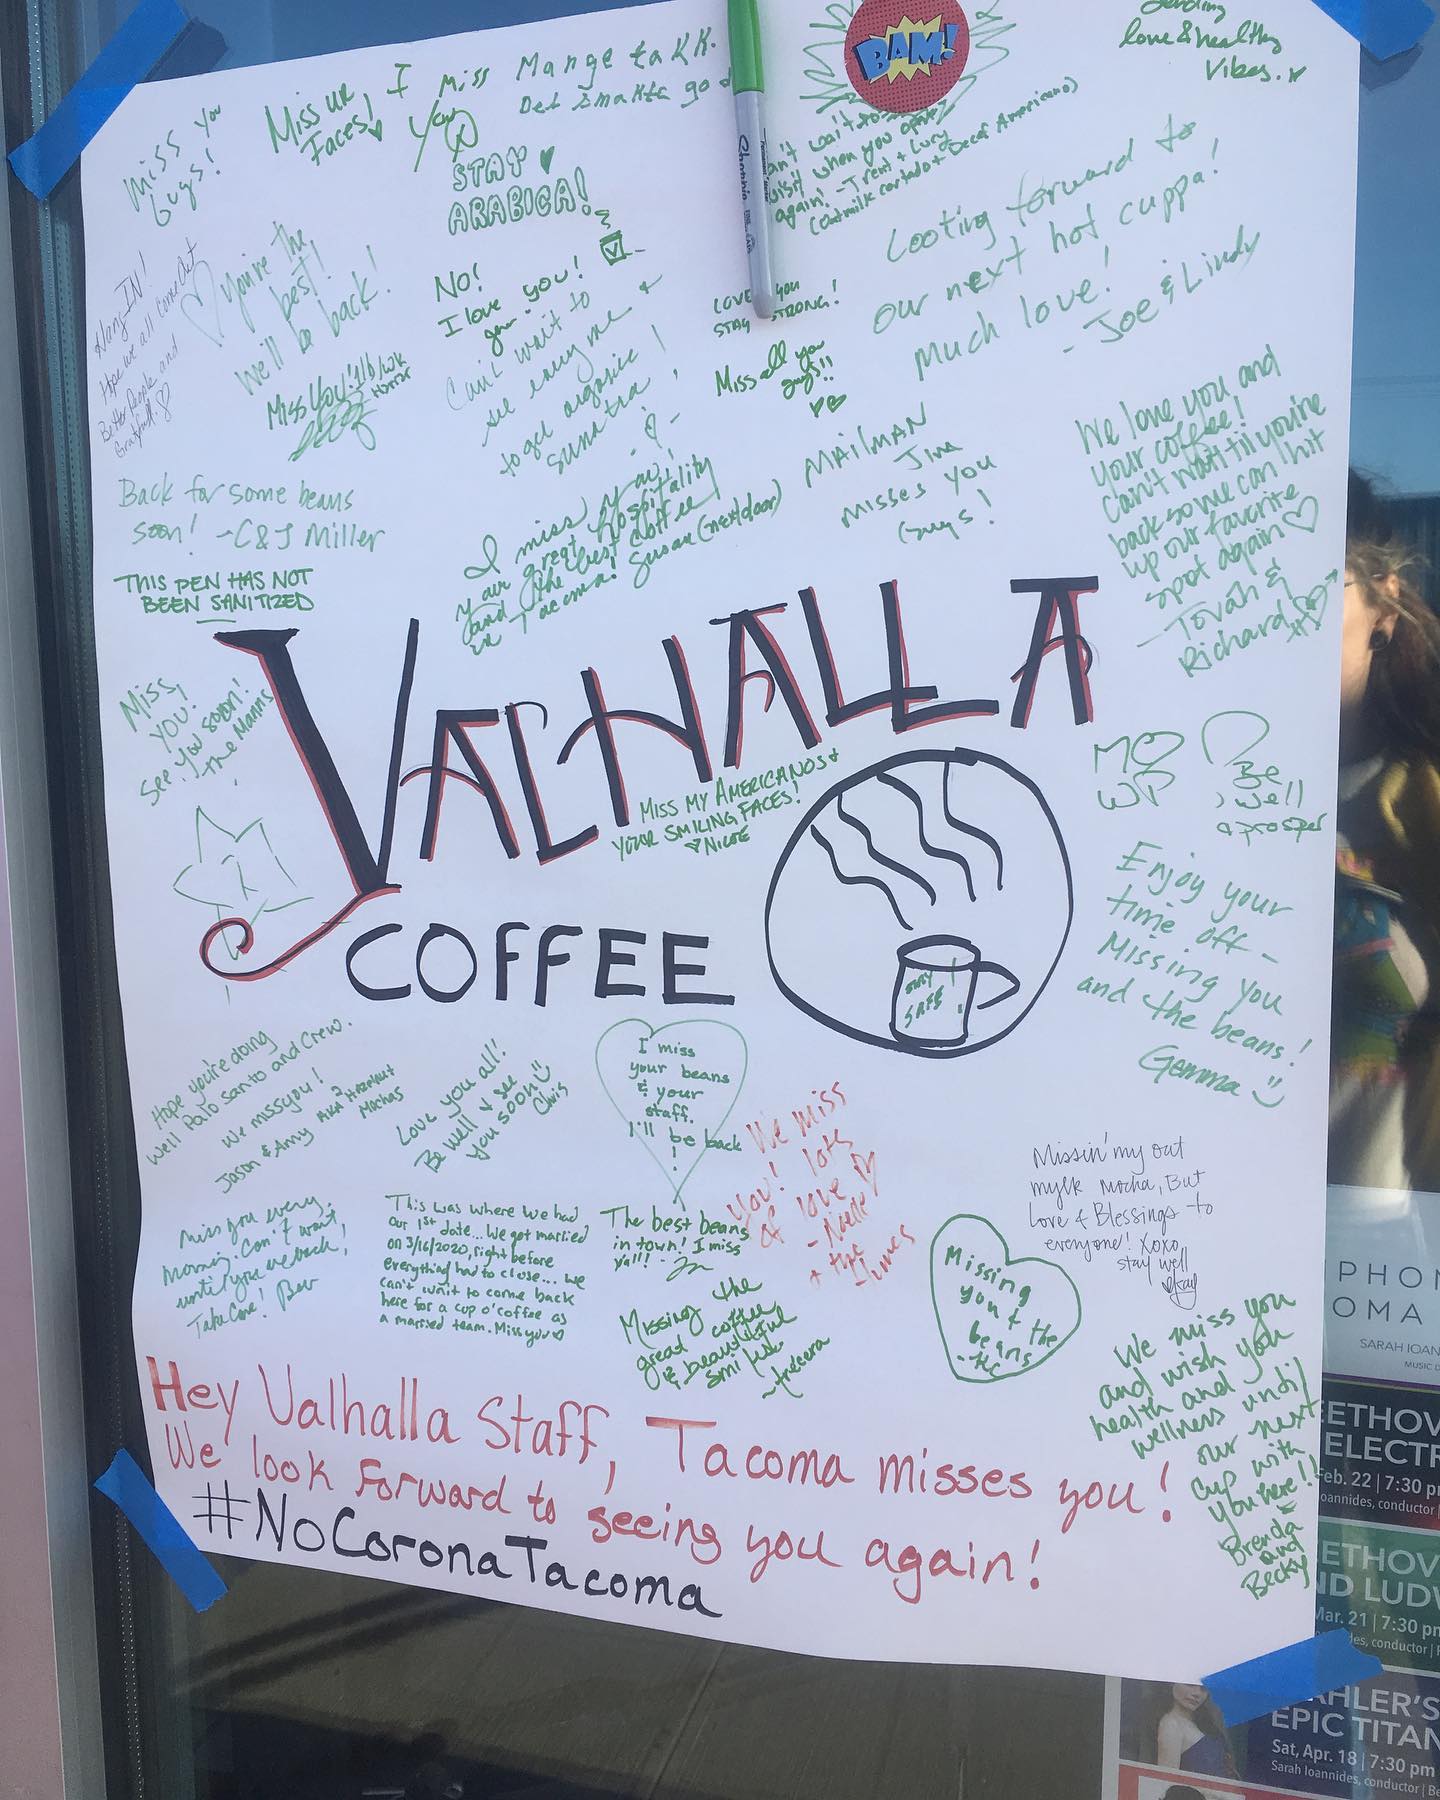 Sending
love & healthy
vibes.
BAM!
Miss you
guys!
Miss ur
Faces!
I Miss
You
Mange takk.
Det smakte godt
STAY
ARABICA!
Can't wait to
visit when you open
again! - Trent + Lucy
(oatmilk cortado + Decaf Americano)
Sharpie
Looking forward to
our next hot cuppa!
Much love!
- Joe & Lindy
Hang IN!
Hope we all come out
Better People and
Grateful.
You're the
best!
We'll be back!
Miss You!
No!
I love you!
Can't wait to
see every one &
to get organic
sumatra!
LOVE you
STAY STRONG!
Miss all you
guys!!
MAILMAN
Jim
MISSES YOU
Guys!
We love you and
your coffee!
Can't wait til you're
back so we can hit
up our favorite
spot again
- Tovah &
Richard
Back for some beans
soon! - C & J Miller
THIS PEN HAS NOT
BEEN SANITIZED
I miss you!
your great hospitality
and the best coffee
in Tacoma! Susan (next door)
VALHALLA
COFFEE
Miss
you!
See you soon!
the Manns
MISS MY AMERICANOS &
YOUR SMILING FACES!
NICOE
STAY
SAFE!
Be
well
& prosper
Enjoy your
time off -
Missing you
and the beans!
Gemma
Hope you're doing
well Palo Santo and Crew.
We miss you!
Jason & Amy AKA 2 Hazelnut
Mochas
Love you all!
Be well & see
you soon
Chris
I miss
your beans
& your
staff.
I'll be back
!
We miss
you! lots
of love
- Noelle
+ the
Missin' my oat
mylk mocha, But
Love & Blessings to
everyone! XOXO,
stay well
Kay
Miss you every
morning. Can't wait
until you're back!
Take Care! Bev
This was where we had
our 1st date... We got married
on 3/16/2020, right before
everything had to close... we
can't wait to come back
here for a cup o' coffee as
a married team. Miss you
The best beans
in town! I miss
ya'll! -
Missing the
great coffee
& beautiful
smiles
Missing
you & the
beans
We miss you
and wish you
health and
wellness until
our next
cup with
you here!!
Brenda
and
Becky
Hey Valhalla Staff, Tacoma misses you!
We look forward to seeing you again!
#NoCoronaTacoma
PHON
OMA
SARAH IOAN
MUSIC D
ETHOV
ELECTR
Feb. 22 | 7:30 p
oannides, conductor
ETHOV
ND LUDW
Mar. 21 | 7:30 p
des, conductor
AHLER'S
EPIC TITAN
Sat, Apr. 18 | 7:30 pm
Sarah Ioannides, conductor | Be